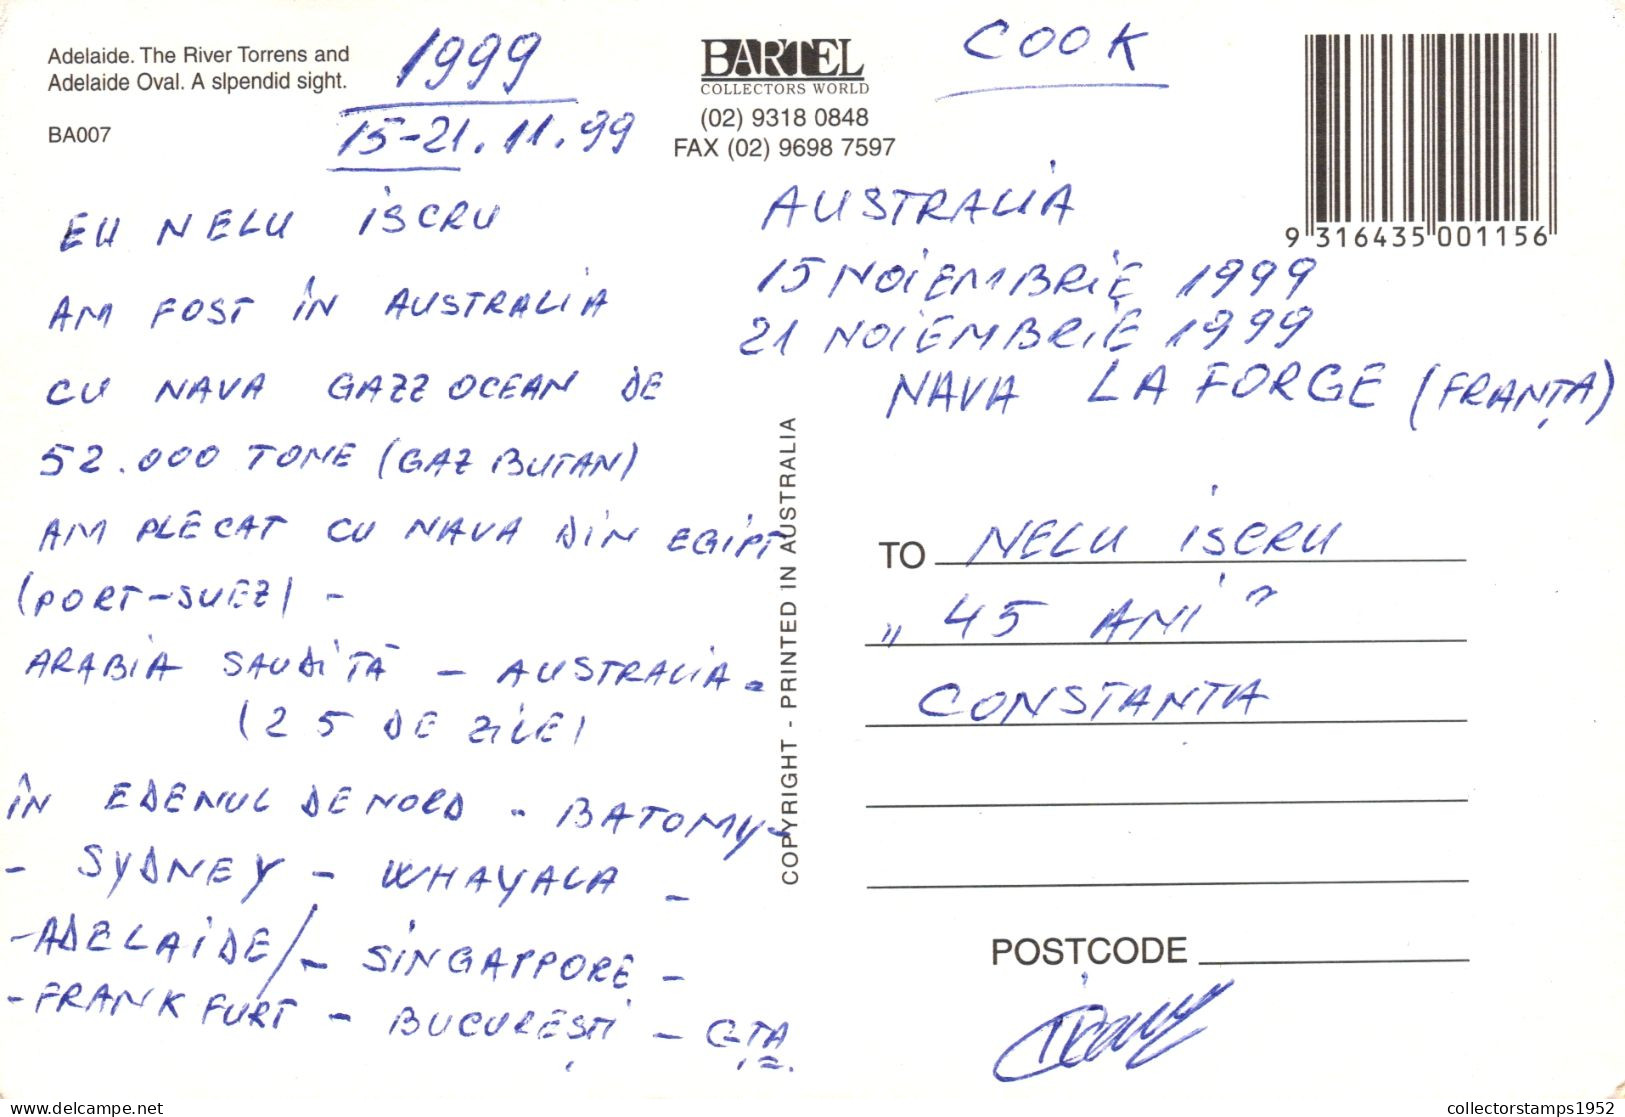 Adelaide. The River Torrens and
Adelaide Oval. A slpendid sight.
BA007
1999
15-21.11.99
EU NELU ISCRU
AM FOST ÎN AUSTRALIA
CU NAVA GAZZ OCEAN DE
52.000 TONE (GAZ BUTAN)
AM PLECAT CU NAVA DIN EGIPT
(PORT-SUEZ) -
ARABIA SAUDITĂ - AUSTRALIA -
(25 DE ZILE)
ÎN EDENUL DE NORD - BATOMY -
- SYDNEY - WHAYALA -
- ADELAIDE / - SINGAPPORE -
- FRANKFURT - BUCUREȘTI - CȚA.
BARTEL
COLLECTORS WORLD
(02) 9318 0848
FAX (02) 9698 7597
COOK
9 316435 001156
AUSTRALIA
15 NOIEMBRIE 1999
21 NOIEMBRIE 1999
NAVA LA FORGE (FRANȚA)
COPYRIGHT - PRINTED IN AUSTRALIA
TO NELU ISCRU
„45 ANI"
CONSTANTA
POSTCODE
collectorstamps1952